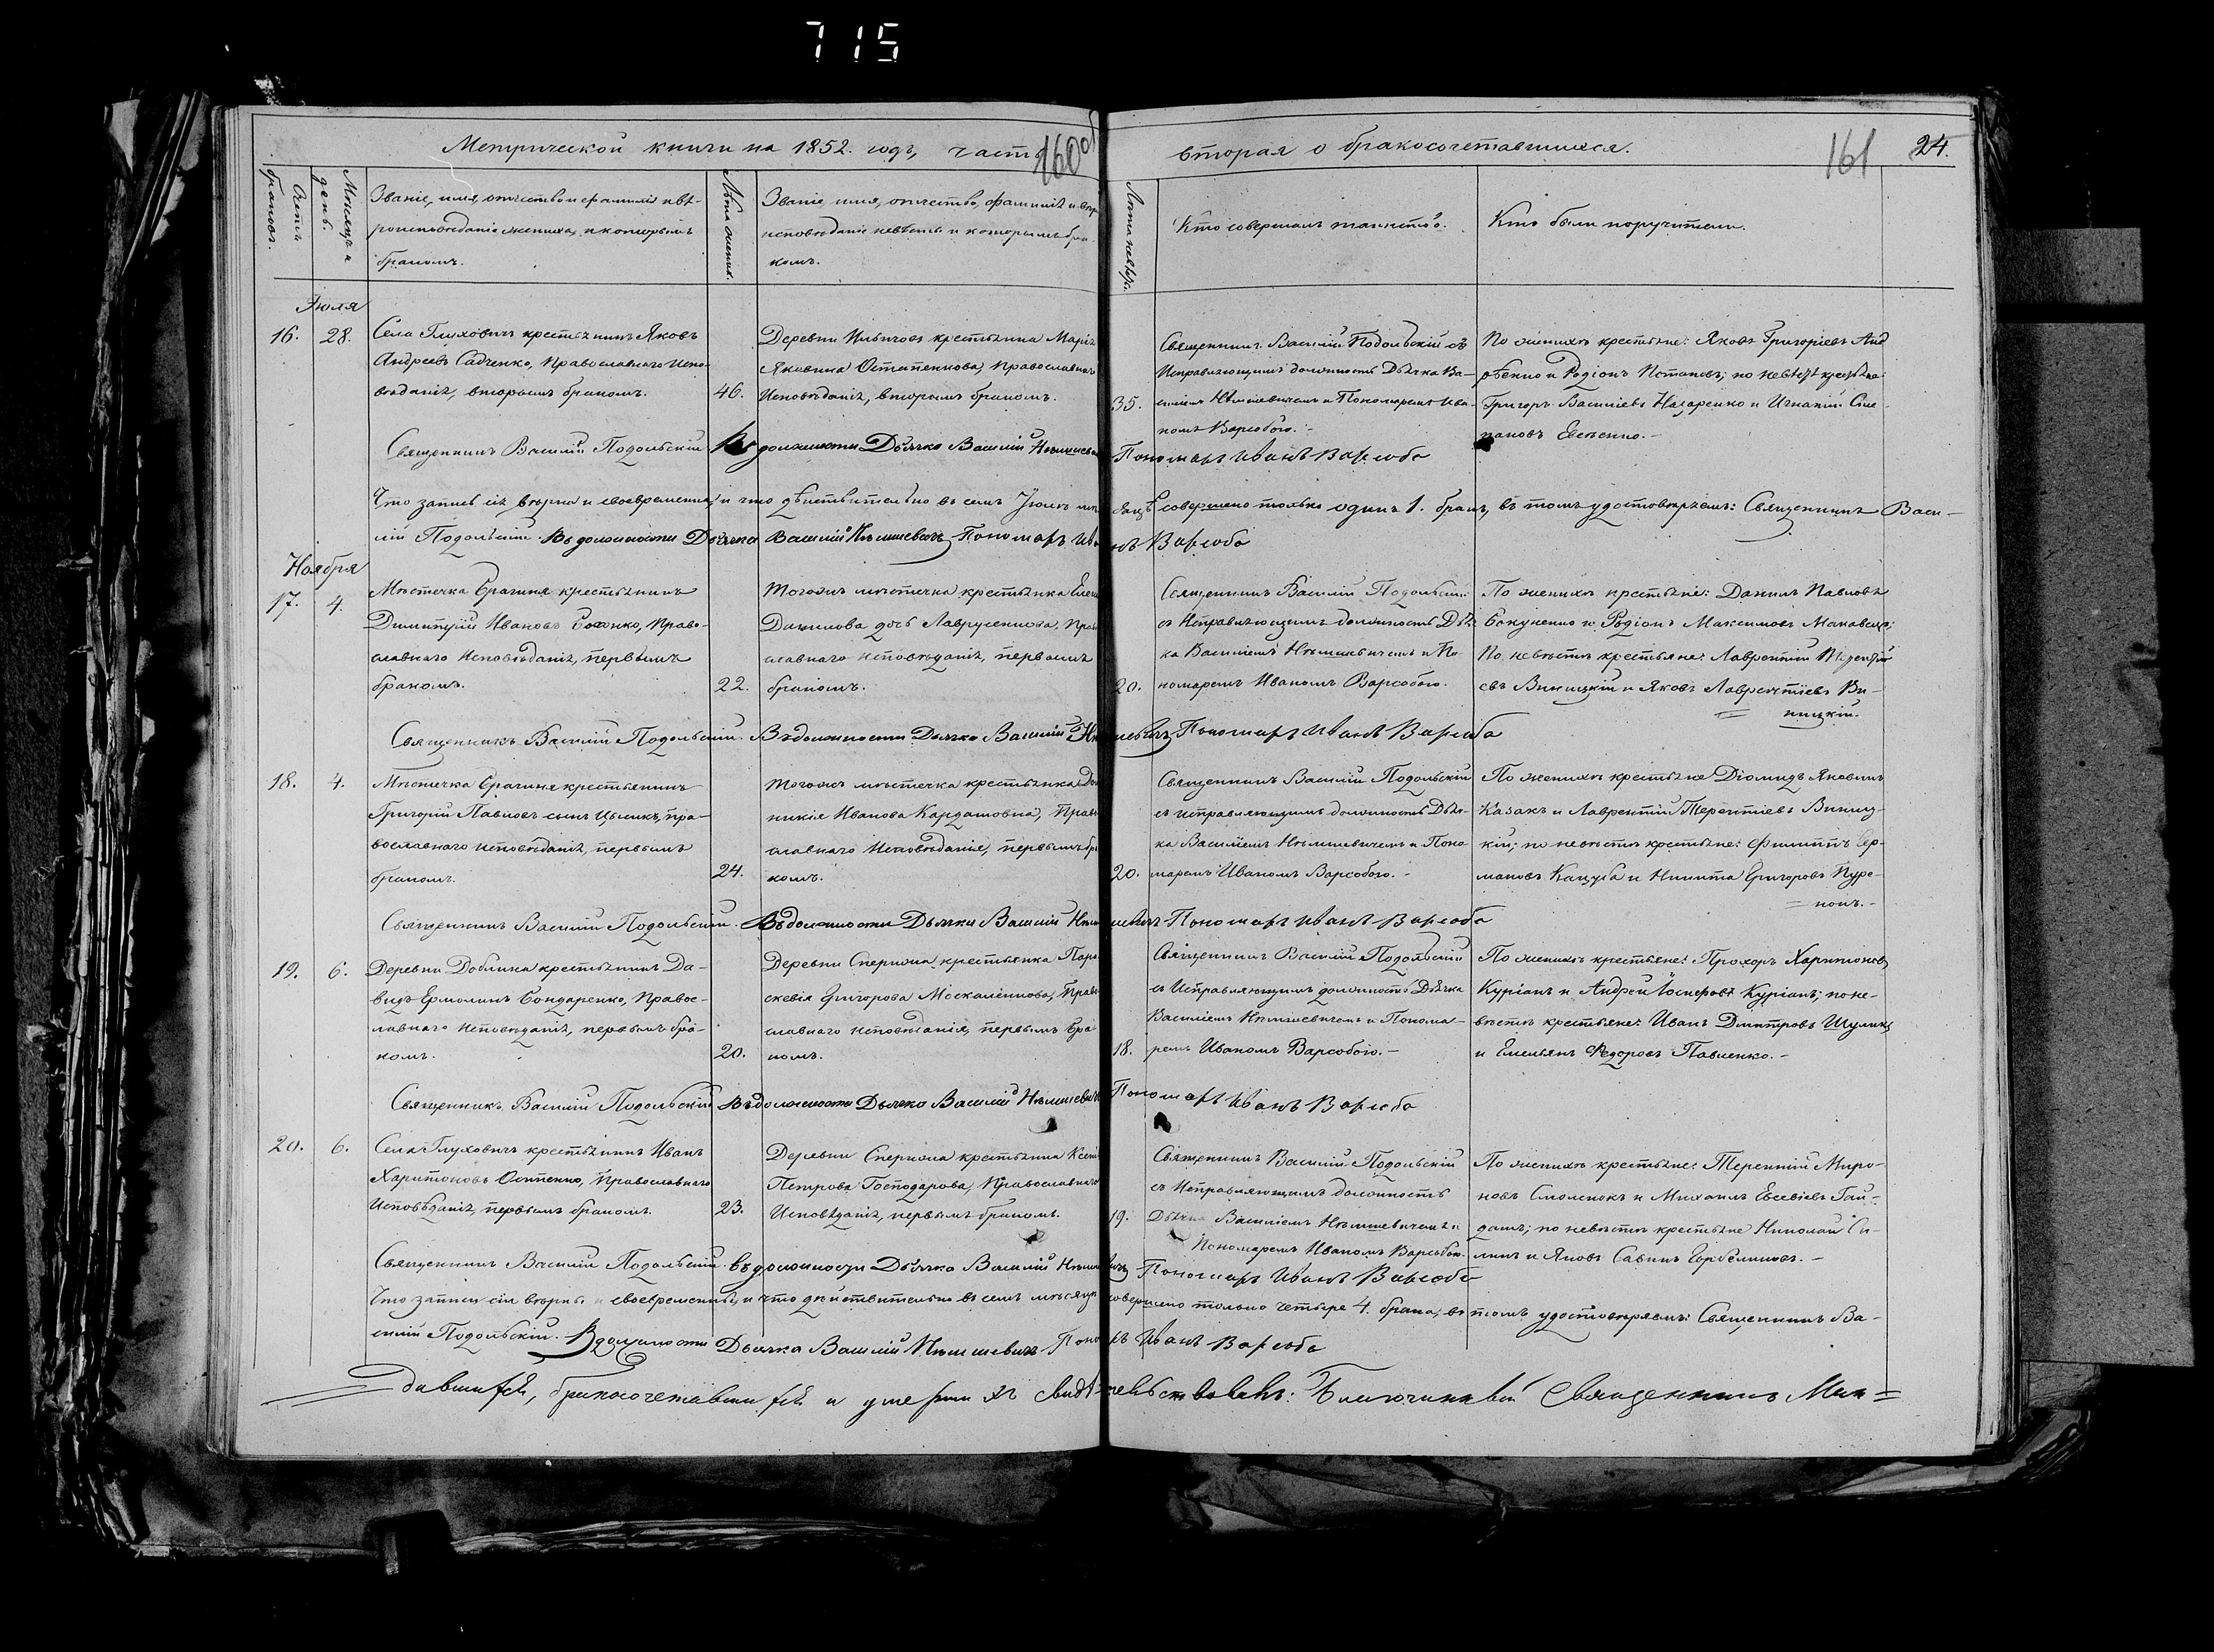 715
Метрической книги на 1852. годъ, часть
160 об
вторая о бракосочетавшихся.
161
24.
Счетъ браковъ.
Мѣсяцъ и день.
Званіе, имя, отчество и фамилія и вѣ-
роисповѣданіе жениха, и которымъ
бракомъ.
Лѣта жениха.
Званіе, имя, отчество, фамилія и вѣро
исповѣданіе невѣсты и которымъ бра-
комъ.
Лѣта невѣсты.
Кто совершалъ таинство.
Кто были поручители.
Іюля
16. 28.
Села Глуховичъ крестьянинъ Яковъ
Андреевъ Садченко, Православнаго Испо-
вѣданія, вторымъ бракомъ.
46.
Деревни Ильичовъ крестьянка Марія
Яковина Остапенкова, Православнаго
Исповѣданія, вторымъ бракомъ.
35.
Священникъ Василій Подольскій съ
Исправляющимъ должность Дьячка Ва-
силіемъ Нѣмшевичемъ и Пономаремъ Ива-
номъ Варсобою.
По женихѣ крестьяне: Яковъ Григоріевъ Анд
рѣенко и Родіонъ; по невѣстѣ крестьяне:
Григоръ Василіевъ Назаренко и Игнатій Сте-
пановъ Евсѣенко.
Священникъ Василій Подольскій Въ должности Дьячка Василій Нѣмшевичъ Пономарь Иванъ Варсоба
Что запись сія вѣрна и своевременна, и что дѣйствительно въ семъ Іюлѣ мѣсяцѣ совершено только одинъ 1. бракъ, въ томъ удостовѣряемъ: Священникъ Васи-
лій Подольскій. Въ должности Дьячка Василій Нѣмшевичъ Пономарь Иванъ Варсоба
Ноября
17. 4.
Мѣстечка Брагиня крестьянинъ
Димитрій Ивановъ, Право-
славнаго Исповѣданія, первымъ
бракомъ.
22.
Тогожъ мѣстечка крестьянка Елена
Данилова дочь Лаврусенкова, Прав
славнаго исповѣданія, первымъ
бракомъ.
20.
Священникъ Василій Подольскій
съ Исправляющимъ должность Дьяч
ка Василіемъ Нѣмшевичемъ и По-
номаремъ Иваномъ Варсобою.
По женихѣ крестьяне: Данилъ Павловъ
Бокуненко и Родіонъ Максимовъ Маковецк;
По невѣстѣ крестьяне: Лаврентій Терентій
евъ Виницкій и Яковъ Лаврентіевъ Ви-
ницкій.
Священникъ Василій Подольскій. Въ должности Дьячка Василій Нѣмшевичъ Пономарь Иванъ Варсоба
18. 4.
Мѣстечка Брагиня крестьянинъ
Григорій Павловъ сынъ Цыликъ, пра-
вославнаго исповѣданія, первымъ
бракомъ.
24.
Тогожъ мѣстечка крестьянка Дом
никія Иванова Кардашовна, Прав
славнаго Исповѣданія, первымъ бра
комъ.
20.
Священникъ Василій Подольскій
съ исправляющимъ должность Дьяч-
ка Василіемъ Нѣмшевичемъ и Поно-
маремъ Иваномъ Варсобою.
По женихѣ крестьяне Діомидъ Яковинъ
Казакъ и Лаврентій Терентіевъ Виниц-
кій; по невѣстѣ крестьяне: Филиппъ Ер-
маковъ Кацуба и Никита Григоровъ Куре-
нокъ.
Священникъ Василій Подольскій. Въ должности Дьячка Василій Нѣмшевичъ Пономарь Иванъ Варсоба
19. 6.
Деревни Доблина крестьянинъ Да-
видъ Ермолинъ Бондаренко, Правос-
лавнаго исповѣданія, первымъ бра-
комъ.
20.
Деревни Спериожа крестьянка Пара
скевія Григорова Москаленкова, Прав
славнаго исповѣданія, первымъ бра
комъ.
18.
Священникъ Василій Подольскій
съ Исправляющимъ должность Дьячка
Василіемъ Нѣмшевичемъ и Понома-
ремъ Иваномъ Варсобою.
По женихѣ крестьяне: Прохоръ Харитоновъ
Куріанъ и Андрей Куріанъ; по не-
вѣстѣ крестьяне: Иванъ Дмитровъ Шулякъ
и Емельянъ Федоровъ Павленко.
Священникъ Василій Подольскій Въ должности Дьячка Василій Нѣмшевичъ Пономарь Иванъ Варсоба
20. 6.
Села Глуховичъ крестьянинъ Иванъ
Харитоновъ, Православнаго
Исповѣданія, первымъ бракомъ.
23.
Деревни Спериожа крестьянка Ксенія
Петрова Господарова, Православнаго
Исповѣданія, первымъ бракомъ.
19.
Священникъ Василій Подольскій
съ Исправляющимъ должность
Дьячка Василіемъ Нѣмшевичемъ и
Пономаремъ Иваномъ Варсобою.
По женихѣ крестьяне: Терентій Миро-
новъ Смоленокъ и Михаилъ Евсевіевъ Гай-
дашъ; по невѣстѣ крестьяне Николай Си-
линъ и Яковъ Савинъ.
Священникъ Василій Подольскій. Въ должности Дьячка Василій Нѣмшевичъ Пономарь Иванъ Варсоба
Что записи сіи вѣрны и своевременны, и что дѣйствительно въ семъ мѣсяцѣ совершено только четыре 4. брака, въ томъ удостовѣряемъ: Священникъ Ва-
силій Подольскій. В должности Дьячка Василій Нѣмшевичъ Пономарь Иванъ Варсоба
бракосочетавшихся и умершихъ свидѣтельствовалъ: Благочинный Священникъ Мин=